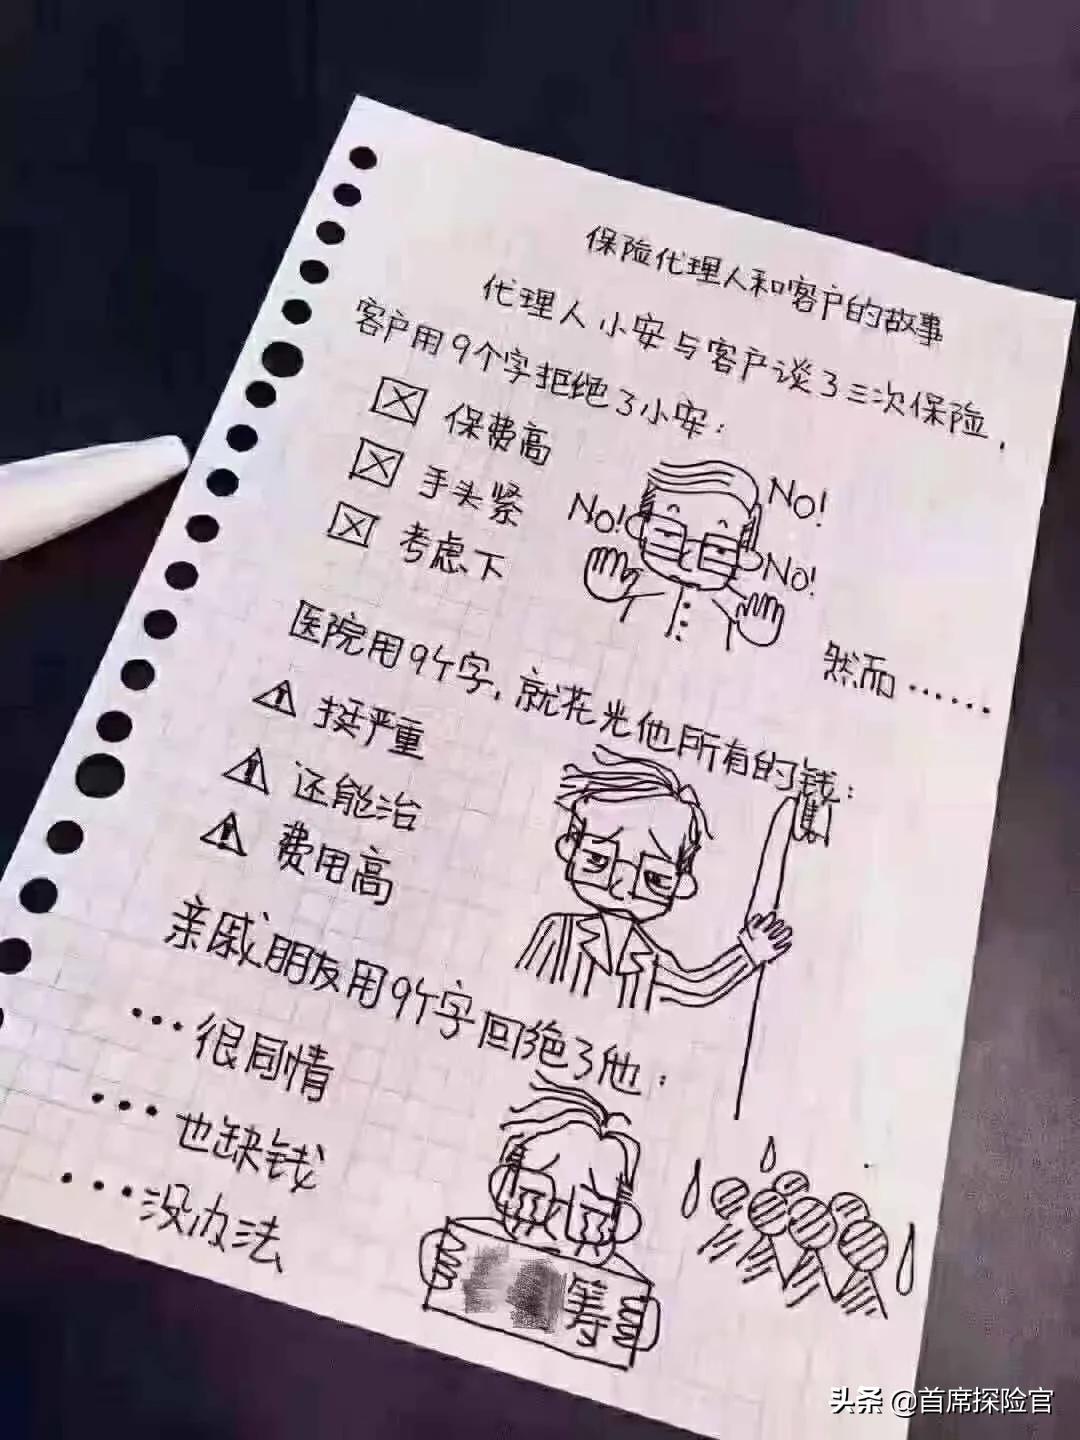 保险代理人和客户的故事
代理人小安与客户谈了三次保险，
客户用9个字拒绝了小安：
保费高
手头紧
考虑下
No!
No!
No!
然而……
医院用9个字，就花光他所有的钱：
挺严重
还能治
费用高
亲戚朋友用9个字回绝了他：
…很同情
…也缺钱
…没办法
筹
头条 @首席探险官